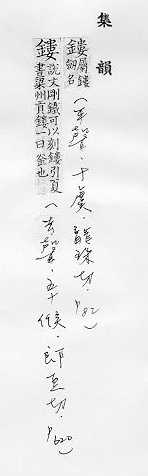 集韻
鏤屬鏤劒名(平聲.十虞.龍珠切.P82)
鏤說文剛鐵可以刻鏤引夏書梁州貢鏤一曰釜也(去聲.五十候.郎豆切.P620)